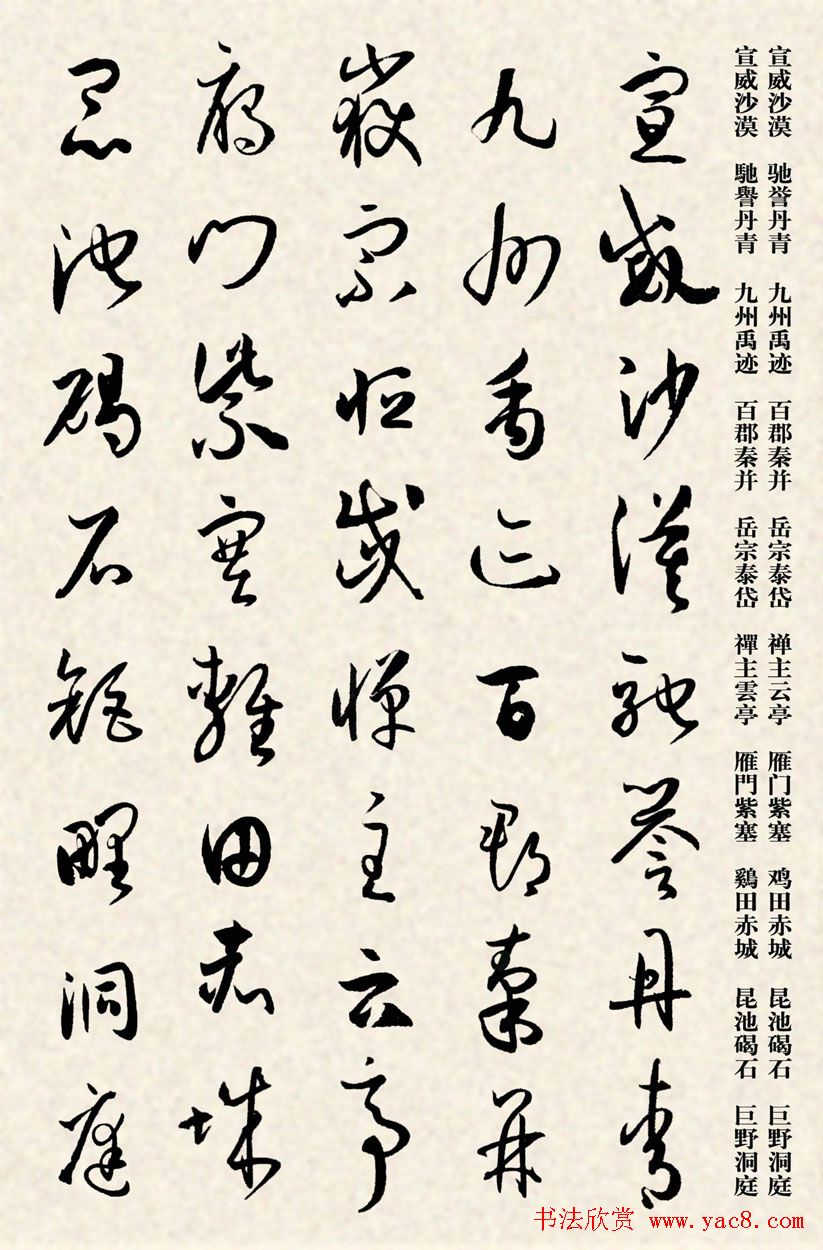 宣威沙漠 驰誉丹青 九州禹迹 百郡秦并 岳宗泰岱 禅主云亭 雁门紫塞 鸡田赤城 昆池碣石 巨野洞庭
宣威沙漠 馳譽丹青 九州禹迹 百郡秦并 岳宗泰岱 禪主雲亭 雁門紫塞 鷄田赤城 昆池碣石 巨野洞庭
宣威沙漠馳譽丹青
九州禹迹百郡秦并
嶽宗恒岱禪主云亭
雁門紫塞雞田赤城
昆池碣石鉅野洞庭
书法欣赏 www.yac8.com